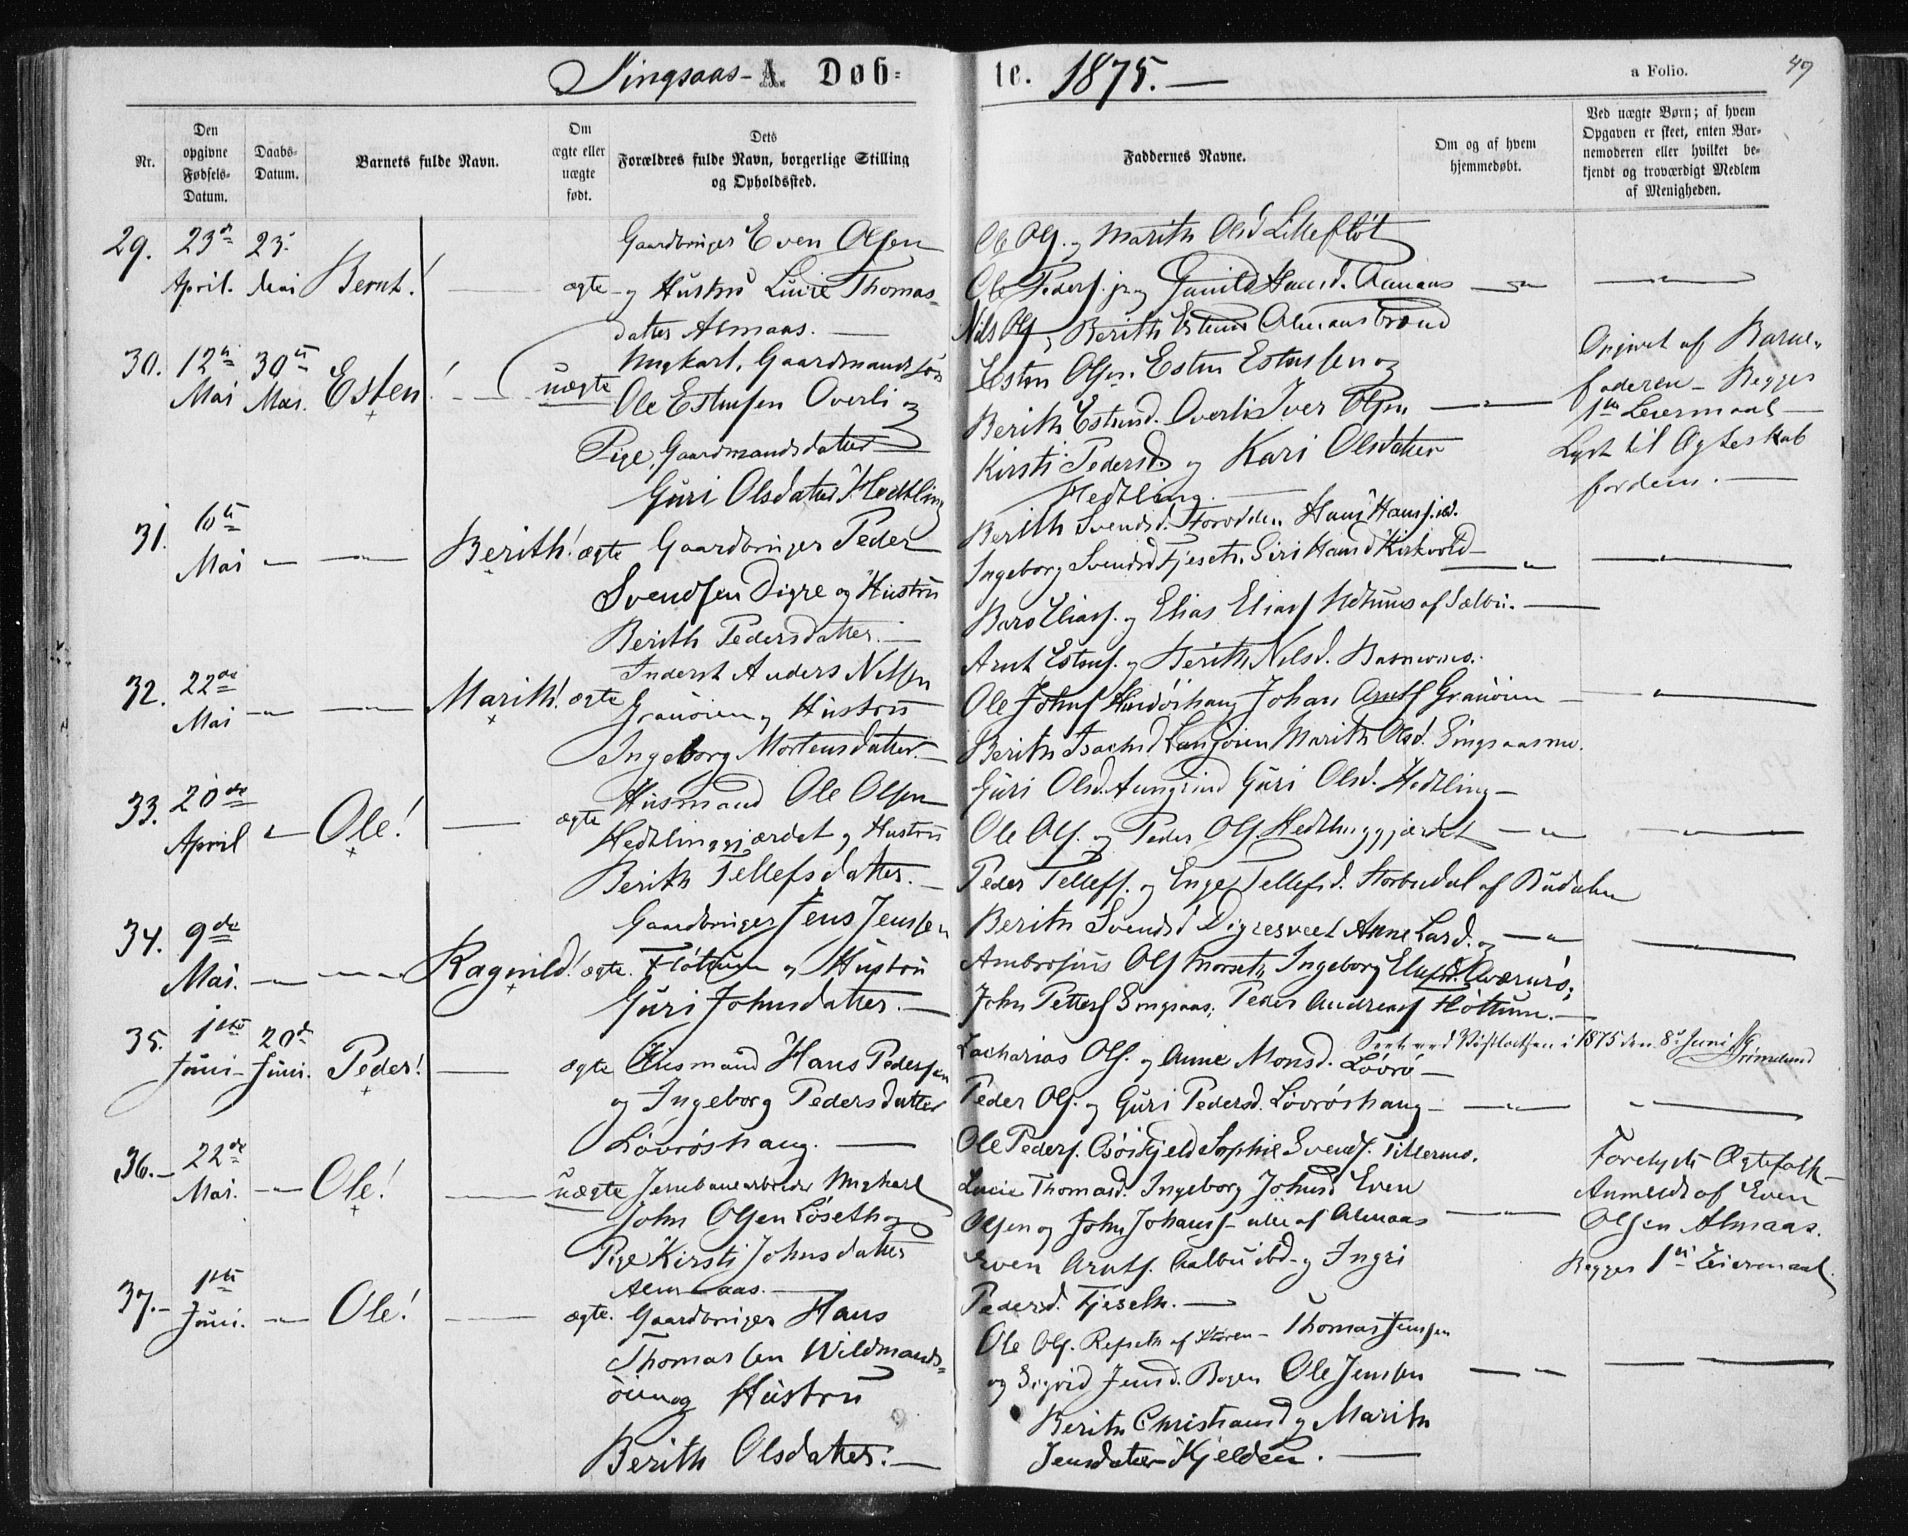 Singsaas- A. Døb-
te. 1875.—
a Folio.
49
Nr.
Den opgivne Fødsels-Datum.
Daabs-Datum.
Barnets fulde Navn.
Om ægte eller uægte født.
Dets Forældres fulde Navn, borgerlige Stilling og Opholdssted.
Faddernes Navne.
Om og af hvem hjemmedøbt.
Ved uægte Børn; af hvem Opgaven er skeet, enten Barnemoderen eller hvilket bekjendt og troværdigt Medlem af Menigheden.
29. 23de April. 23. Mai Bernt! ægte
Gaardbruger Even Olsen
og Hustru Lucie Thomas-
datter Almaas.—
Ole Ols. og Marith Olsd Lillefløt
Ole Peders. jr og Gunild Hansd. Almaas
Nils Ols og Berith Estensd Almaasbrænd
30. 12te Mai 30te Mai. Esten! uægte
Ungkarl, Gaardmandssøn
Ole Estensen Overli og
Pige, Gaardmandsdatter
Guri Olsdatter Hedtling
Esten Olsen, Esten Estensen og
Berith Estensd. Overli Iver Olsen
Kirsti Pedersd og Kari Olsdatter
Hedtling.—
Opgivet af Barne-
faderen— Begges
1ste Leiermaal—
Lyst til Ægteskab
fordem.—
31. 10de Mai Berith! ægte
Gaardbruger Peder
Svendsen Digre og Hustru
Berith Pedersdatter.—
Berith Svendsd. Storødden, Hans Hans
Ingeborg Svendsd Fjeseth, Siri Hansd Kirkvold—
Baro Elias. og Elias Elias af Selbu.—
32. 22de Mai Marith! ægte
Inderst Anders Nilsen
Granøien og Hustru
Ingeborg Mortensdatter.—
Arnt Estens. og Berith Nilsd.
Ole Johns Johan Arnts Granøien
Berith Isachsd Langøien Marith Olsd. Singsaasmo.
33. 20de April Ole! ægte
Husmand Ole Olsen
Hedtlinggjærdet og Hustru
Berith Tellefsdatter.—
Guri Olsd. Guri Olsd. Hedtling—
Ole Ols. og Peder Ols. Hedtlinggjærdet
Peder Tellefs. og Enge Tellefsd. Storbudal af Budalen
34. 9de Mai. Ragnild! ægte.
Gaardbruger Jens Jensen
Fløttum og Hustru
Guri Johnsdatter.—
Berith Svendsd Digresveet Anne Larsd. og
Ambrosius Ols Morseth, Ingeborg Elefsd. Kværnrø;
John Petters Singsaas, Peder Andreas Fløttum.—
35. 1ste Juni— 20de Juni. Peder! ægte
Husmand Hans Pedersen
og Ingeborg Pedersdatter
Løvrøshaug.—
Seet ved i 1875 den 8de Juni Grimelund
Zacharias Ols. og Anne Monsd. Løvrø—
Peder Ols. og Guri Pedersd. Løvrøshaug—
Ole Peders. Sophie Svends. Tillermo.
36.— 22de Mai. Ole! uægte
Jernbanearbeider Ungkarl
John Olsen Løseth og
Pige Kirsti Johnsdatter
Almaas.—
Lucie Thomasd. Ingeborg Johnsd Even
Olsen og John Johans— alle af Almaas
Even Arnts. Aalbu ibd— og Ingri
Pedersd. Fjeseth.—
Forelyste Ægtefolk—
Anmeldt af Even
Olsen Almaas.
Begges 1ste Leiermaal.
37.— 1ste Juni. Ole! ægte.
Gaardbruger Hans
Thomassen Wildmands-
øien og Hustru
Berith Olsdatter.—
Ole Ols. Refseth af Støren— Thomas Jensen
og Sigrid Jensd. Bogen Ole Jensen
Berith Christiansd og Marith
Jensdatter Kjelden.—